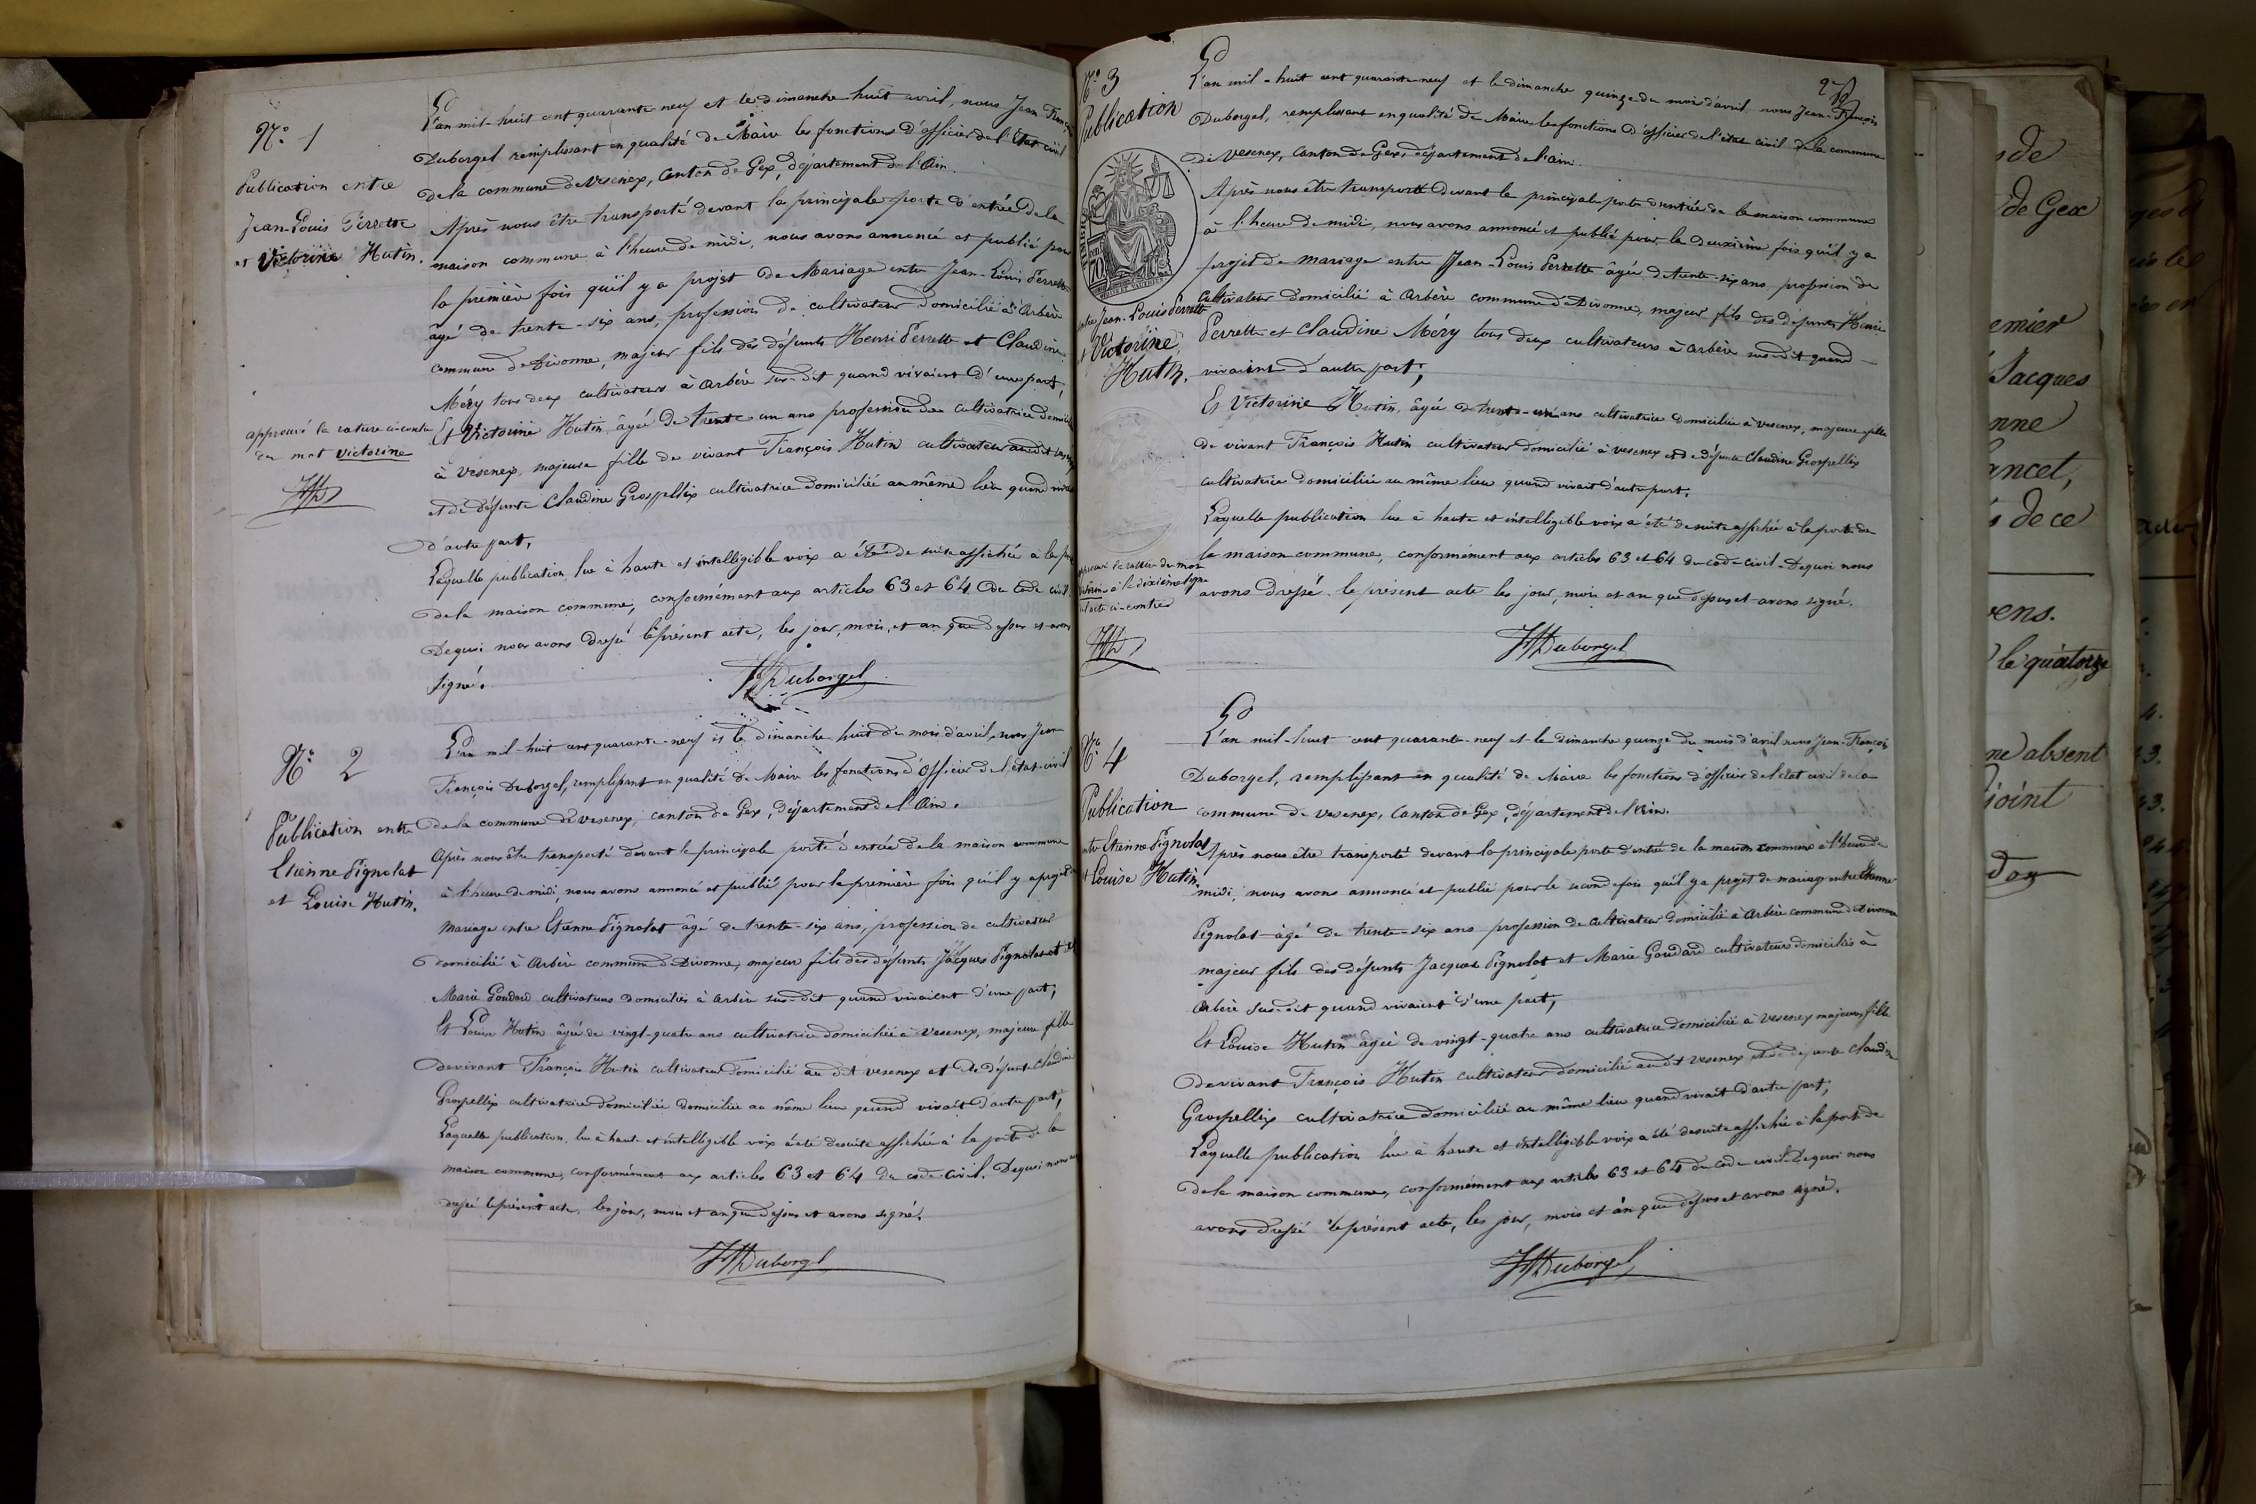 N.° 1
Publication entre
Jean-Louis Perrette
et Victorine Hutin.
approuvé la rature ci-contre
du mot victorine
L'an mil-huit cent quarante neuf et le dimanche huit avril, nous Jean François
Duborgel remplissant en qualité de Maire les fonctions d'officier de l'Etat civil
de la commune de Vesenex, Canton de Gex, département de l'Ain.
Après nous être transporté devant la principale porte d'entrée de la
maison commune à l'heure de midi, nous avons annoncé et publié pour
la première fois qu'il y a projet de Mariage entre Jean-Louis Perrette
âgé de trente-six ans, profession de cultivateur domicilié à Arbère
commune de Divonne, majeur fils des défunts Henri Perrette et Claudine
Méry tous deux cultivateurs à Arbère sus-dit quand vivaient d'une part,
Et Victorine Hutin, âgée de trente-un ans profession de cultivatrice
à Vesenex, majeure fille de vivant François Hutin cultivateur au dit
et de défunte Claudine Grospellix cultivatrice domiciliée au même lieu quand
d'autre part,
Laquelle publication lue à haute et intelligible voix a été de suite affichée à la
de la maison commune, conformément aux articles 63 et 64 du Code civil
De quoi nous avons dressé le présent acte, les jour, mois, et an que dessus et avons
signé.
JF Duborgel
N.° 2
Publication entre
Etienne Pignolat
et Louise Hutin.
L'an mil-huit cent quarante-neuf et le dimanche huit du mois d'avril, nous Jean
François Duborgel, remplissant en qualité de Maire les fonctions d'Officier de l'état-civil
de la commune de Vesenex, canton de Gex, département de l'Ain.
Après nous être transporté devant le principale porte d'entrée de la maison commune
à l'heure de midi, nous avons annoncé et publié pour la première fois qu'il y a projet de
mariage entre Etienne Pignolat âgé de trente-six ans, profession de cultivateur
domicilié à Arbère commune de Divonne, majeur fils des défunts Jacques Pignolat et
Marie Goudard cultivateurs domiciliés à Arbère sus-dit quand vivaient d'une part,
Et Louise Hutin âgée de vingt-quatre ans cultivatrice domiciliée à Vesenex, majeure fille
de vivant François Hutin cultivateur domicilié au dit vesenex et de défunte Claudine
Grospellix cultivatrice domiciliée domiciliée au même lieu quand vivait d'autre part,
Laquelle publication, lue à haute et intelligible voix a été de suite affichée à la porte de la
maison commune, conformément aux articles 63 et 64 du code civil. De quoi nous
dressé le présent acte, les jour, mois et an que dessus et avons signé.
JF Duborgel
N.° 3
Publication
entre Jean-Louis Perrette
et Victorine
Hutin.
approuvé la rature du mot
à la dixième ligne
l'acte ci-contre
L'an mil-huit cent quarante-neuf et le dimanche quinze du mois d'avril nous Jean-François
Duborgel, remplissant en qualité de Maire les fonctions d'officier de l'état civil de la commune
de Vesenex, Canton de Gex, département de l'ain.
Après nous être transporté devant le principale porte d'entrée de la maison commune
à l'heure de midi, nous avons annoncé et publié pour la deuxième fois qu'il y a
projet de mariage entre Jean-Louis Perrette âgée de trente-six ans profession de
cultivateur domicilié à Arbère commune de Divonne, majeur fils des défunts Henri
Perrette et Claudine Méry tous deux cultivateurs à Arbère sus-dit quand
vivaient d'autre part,
Et Victorine Hutin, âgée de trente-un ans cultivatrice domiciliée à vesenex, majeure fille
de vivant François Hutin cultivateur domicilié à vesenex et de défunte Claudine Grospellix
cultivatrice domiciliée au même lieu quand vivait d'autre part.
Laquelle publication lue à haute et intelligible voix a été de suite affichée à la porte de
la maison commune, conformément aux articles 63 et 64 du code civil. De quoi nous
avons dressé le présent acte les jour, mois et an que dessus et avons signé.
JF Duborgel
N.° 4
Publication
entre Etienne Pignolat
et Louise Hutin.
L'an mil-huit cent quarante-neuf et le dimanche quinze du mois d'avril nous Jean-François
Duborgel, remplissant en qualité de Maire les fonctions d'officier de l'état civil de la
commune de Vesenex, Canton de Gex, département de l'Ain.
Après nous être transporté devant la principale porte d'entrée de la maison commune à l'heure de
midi, nous avons annoncé et publié pour le seconde fois qu'il y a projet de mariage entre Etienne
Pignolat âgé de trente-six ans profession de cultivateur domicilié à Arbère commune de Divonne
majeur fils des défunts Jacques Pignolat et Marie Goudard cultivateurs domiciliés à
Arbère sus-dit quand vivaient d'une part,
Et Louise Hutin âgée de vingt-quatre ans cultivatrice domiciliée à Vesenex majeure fille
de vivant François Hutin cultivateur domicilié au dit vesenex et de défunte Claudine
Grospellix cultivatrice domiciliée au même lieu quand vivait d'autre part,
Laquelle publication lue à haute et intelligible voix a été de suite affichée à la porte de
de la maison commune, conformément aux articles 63 et 64 du code civil. De quoi nous
avons dressé le présent acte, les jour, mois et an que dessus et avons signé.
JF Duborgel
de
de Gex
Jacques
de ce
le quatorze
absent